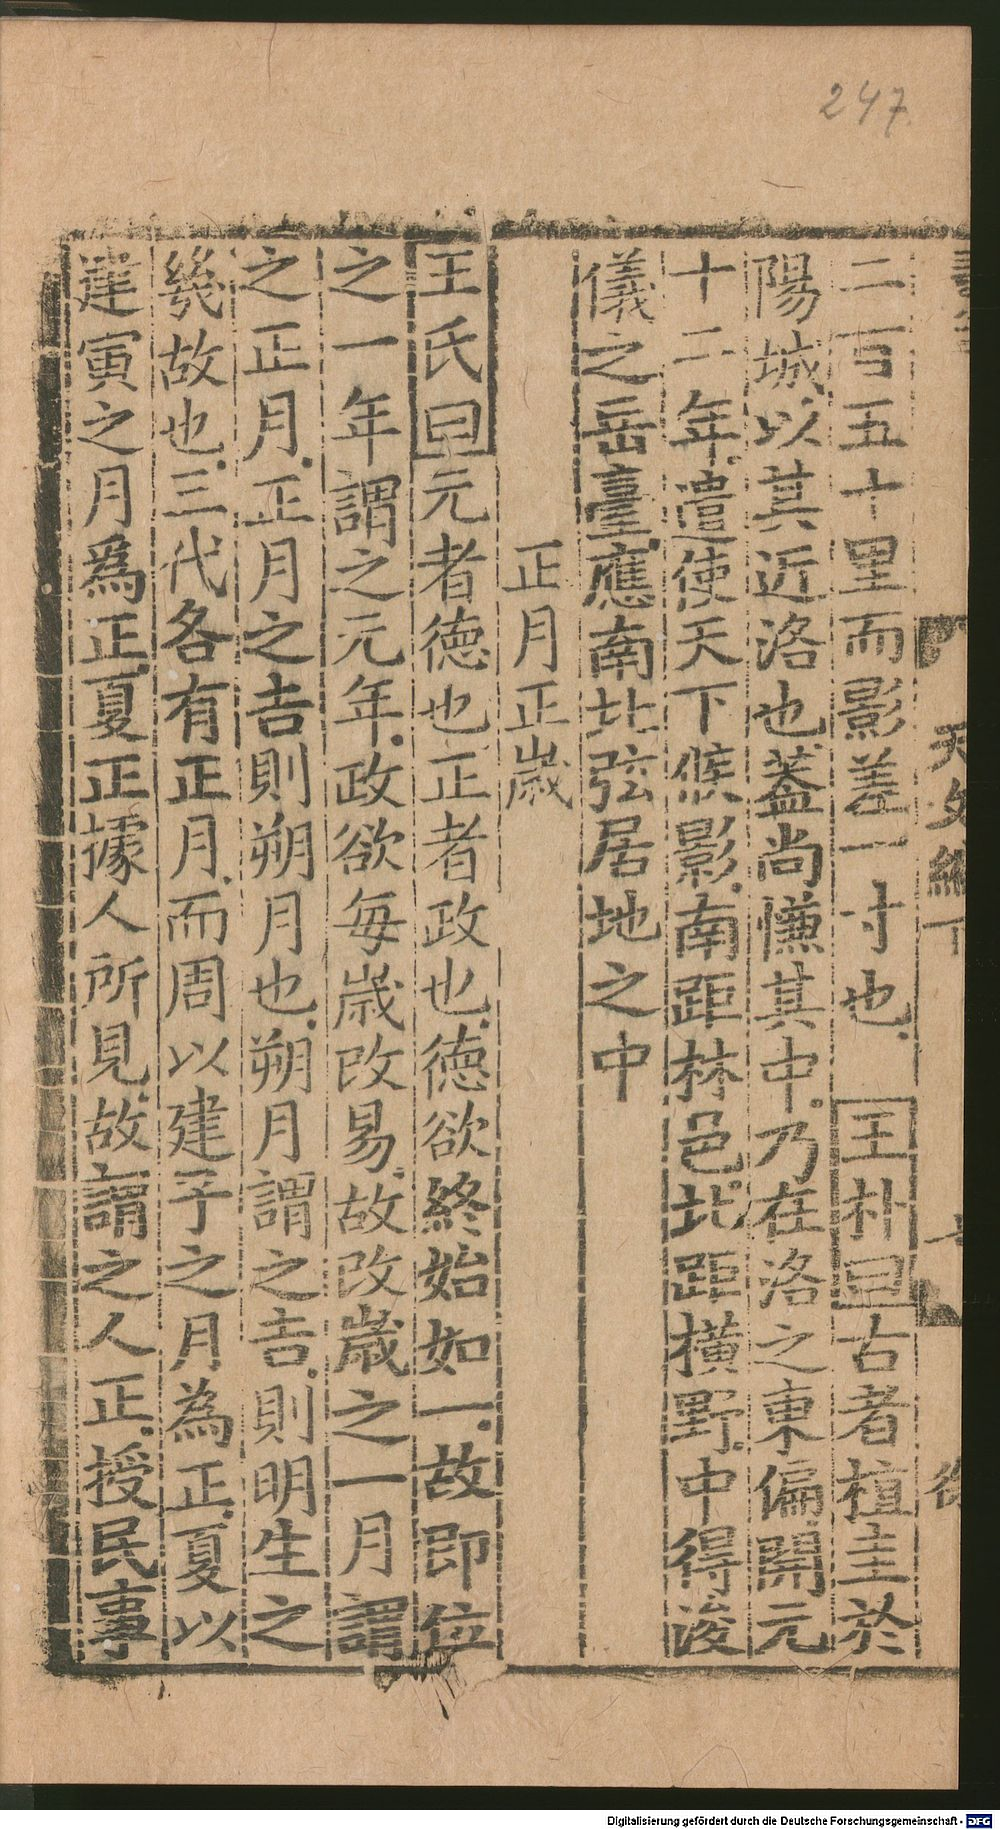 247
天文編下
二百五十里而影差一寸也王朴曰古者植圭於
陽城以其近洛也蓋尚慊其中乃在洛之東偏開元
十二年遣使天下候影南距林邑北距橫野中得浚
儀之岳臺應南北弦居地之中
正月正歲
王氏曰元者德也正者政也德欲終始如一故即位
之一年謂之元年政欲每歲改易故改歲之一月謂
之正月正月之吉則朔月也朔月謂之吉則明生之
幾故也三代各有正月而周以建子之月為正夏以
建寅之月爲正夏正據人所見故謂之人正授民事
Digitalisierung gefördert durch die Deutsche Forschungsgemeinschaft - DFG